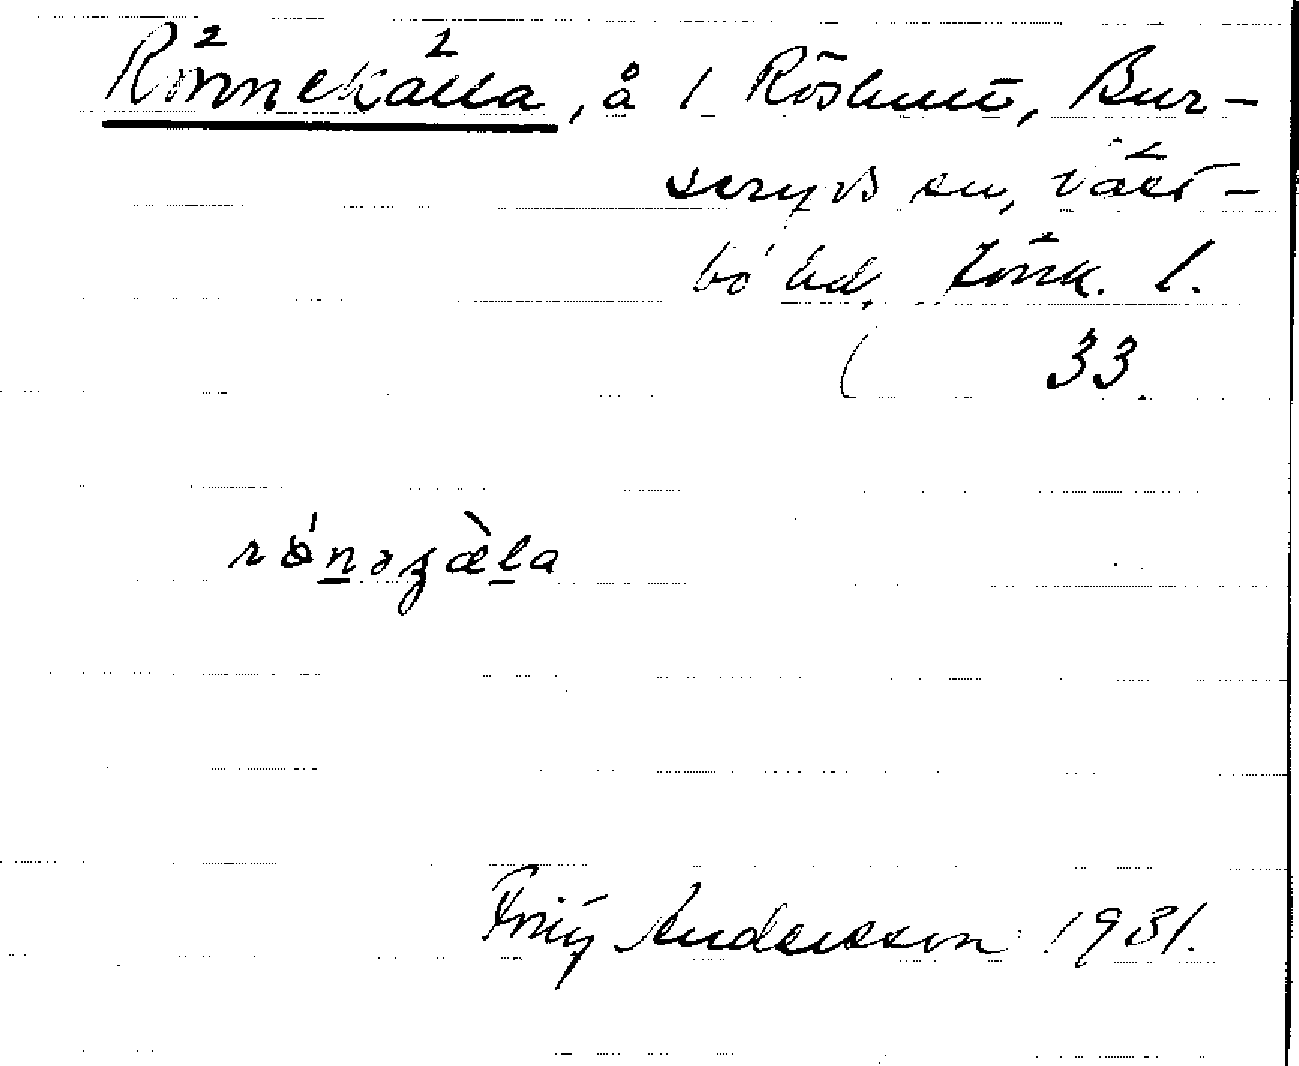 Rönnekälla, å 1 Röshult, Bur-
seryds sn, Väst-
bo hd. Jönk. l.
33.
Fritz Andersson 1931.